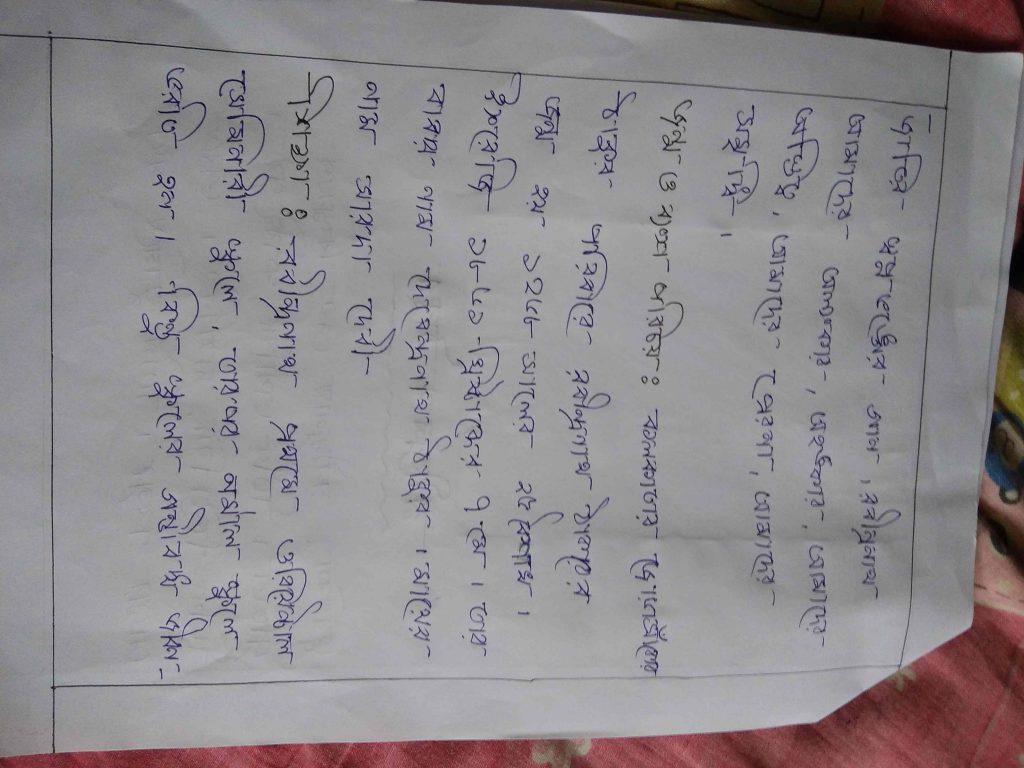 মধুর স্পর্শের নাম, রবীন্দ্রনাথ
আমাদের অলংকার, অহংকার, আমাদের
অস্তিত্ব, আমাদের প্রেরণা, আমাদের
সমৃদ্ধি।
জন্ম ও বংশ পরিচয়ঃ কলকাতার জোড়াসাঁকোর
ঠাকুর পরিবারে রবীন্দ্রনাথ ঠাকুরের
জন্ম হয় ১২৬৮ সালের ২৫ বৈশাখ।
ইংরেজি ১৮৬১ খ্রিস্টাব্দের ৭ মে। তার
বাবার নাম দেবেন্দ্রনাথ ঠাকুর। মায়ের
নাম সারদা দেবী
শিক্ষাঃ রবীন্দ্রনাথ প্রথমে ওরিয়েন্টাল
সেমিনারী স্কুলে, তারপর নর্মাল স্কুলে
ভর্তি হন। কিন্তু স্কুলের